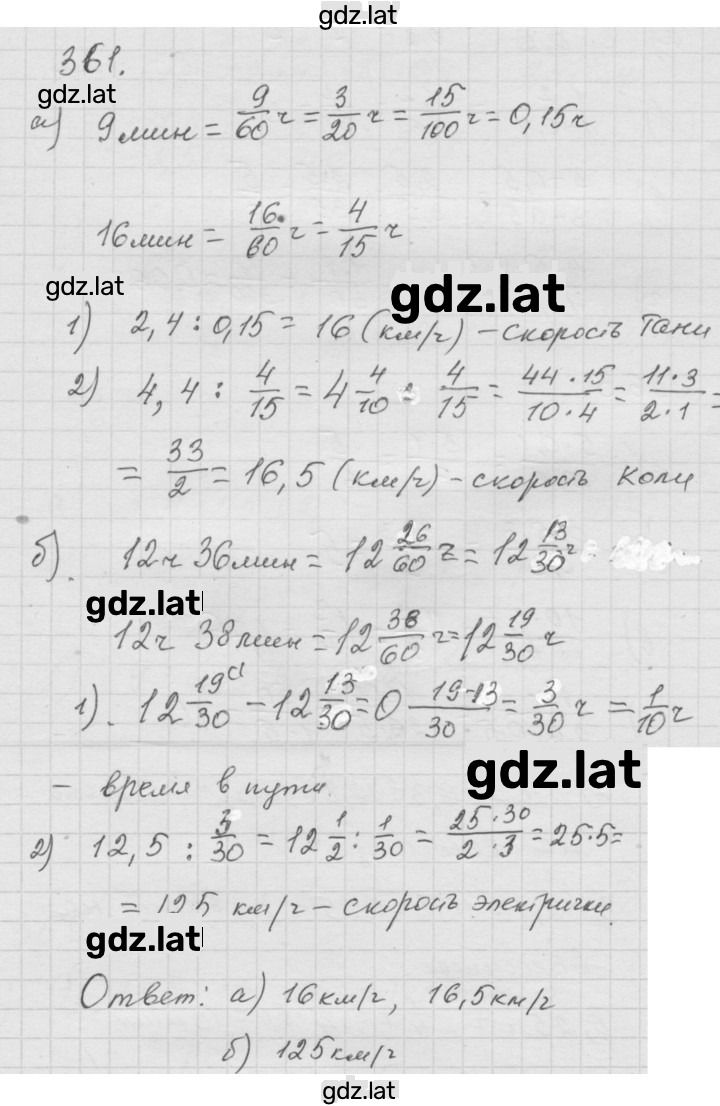 gdz.lat
361.
gdz.lat
а) 9 мин = 9/60 ч = 3/20 ч = 15/100 ч = 0,15 ч
16 мин = 16/60 ч = 4/15 ч
gdz.lat
gdz.lat
1) 2,4 : 0,15 = 16 (км/ч) – скорость Тани
2) 4,4 : 4/15 = 4 4/10 : 4/15 = 44·15/10·4 = 11·3/2·1 =
= 33/2 = 16,5 (км/ч) – скорость Коли
б). 12ч 36мин = 12 26/60 ч = 12 13/30 ч
gdz.lat
12ч 38мин = 12 38/60 ч = 12 19/30 ч
1). 12 19/30 – 12 13/30 = 0 19-13/30 = 3/30 ч = 1/10 ч
– время в пути.
gdz.lat
2) 12,5 : 3/30 = 12 1/2 : 1/30 = 25·30/2·3 = 25·5 =
= 125 км/ч – скорость электрички.
gdz.lat
Ответ: а) 16км/ч, 16,5км/ч
б) 125км/ч
gdz.lat